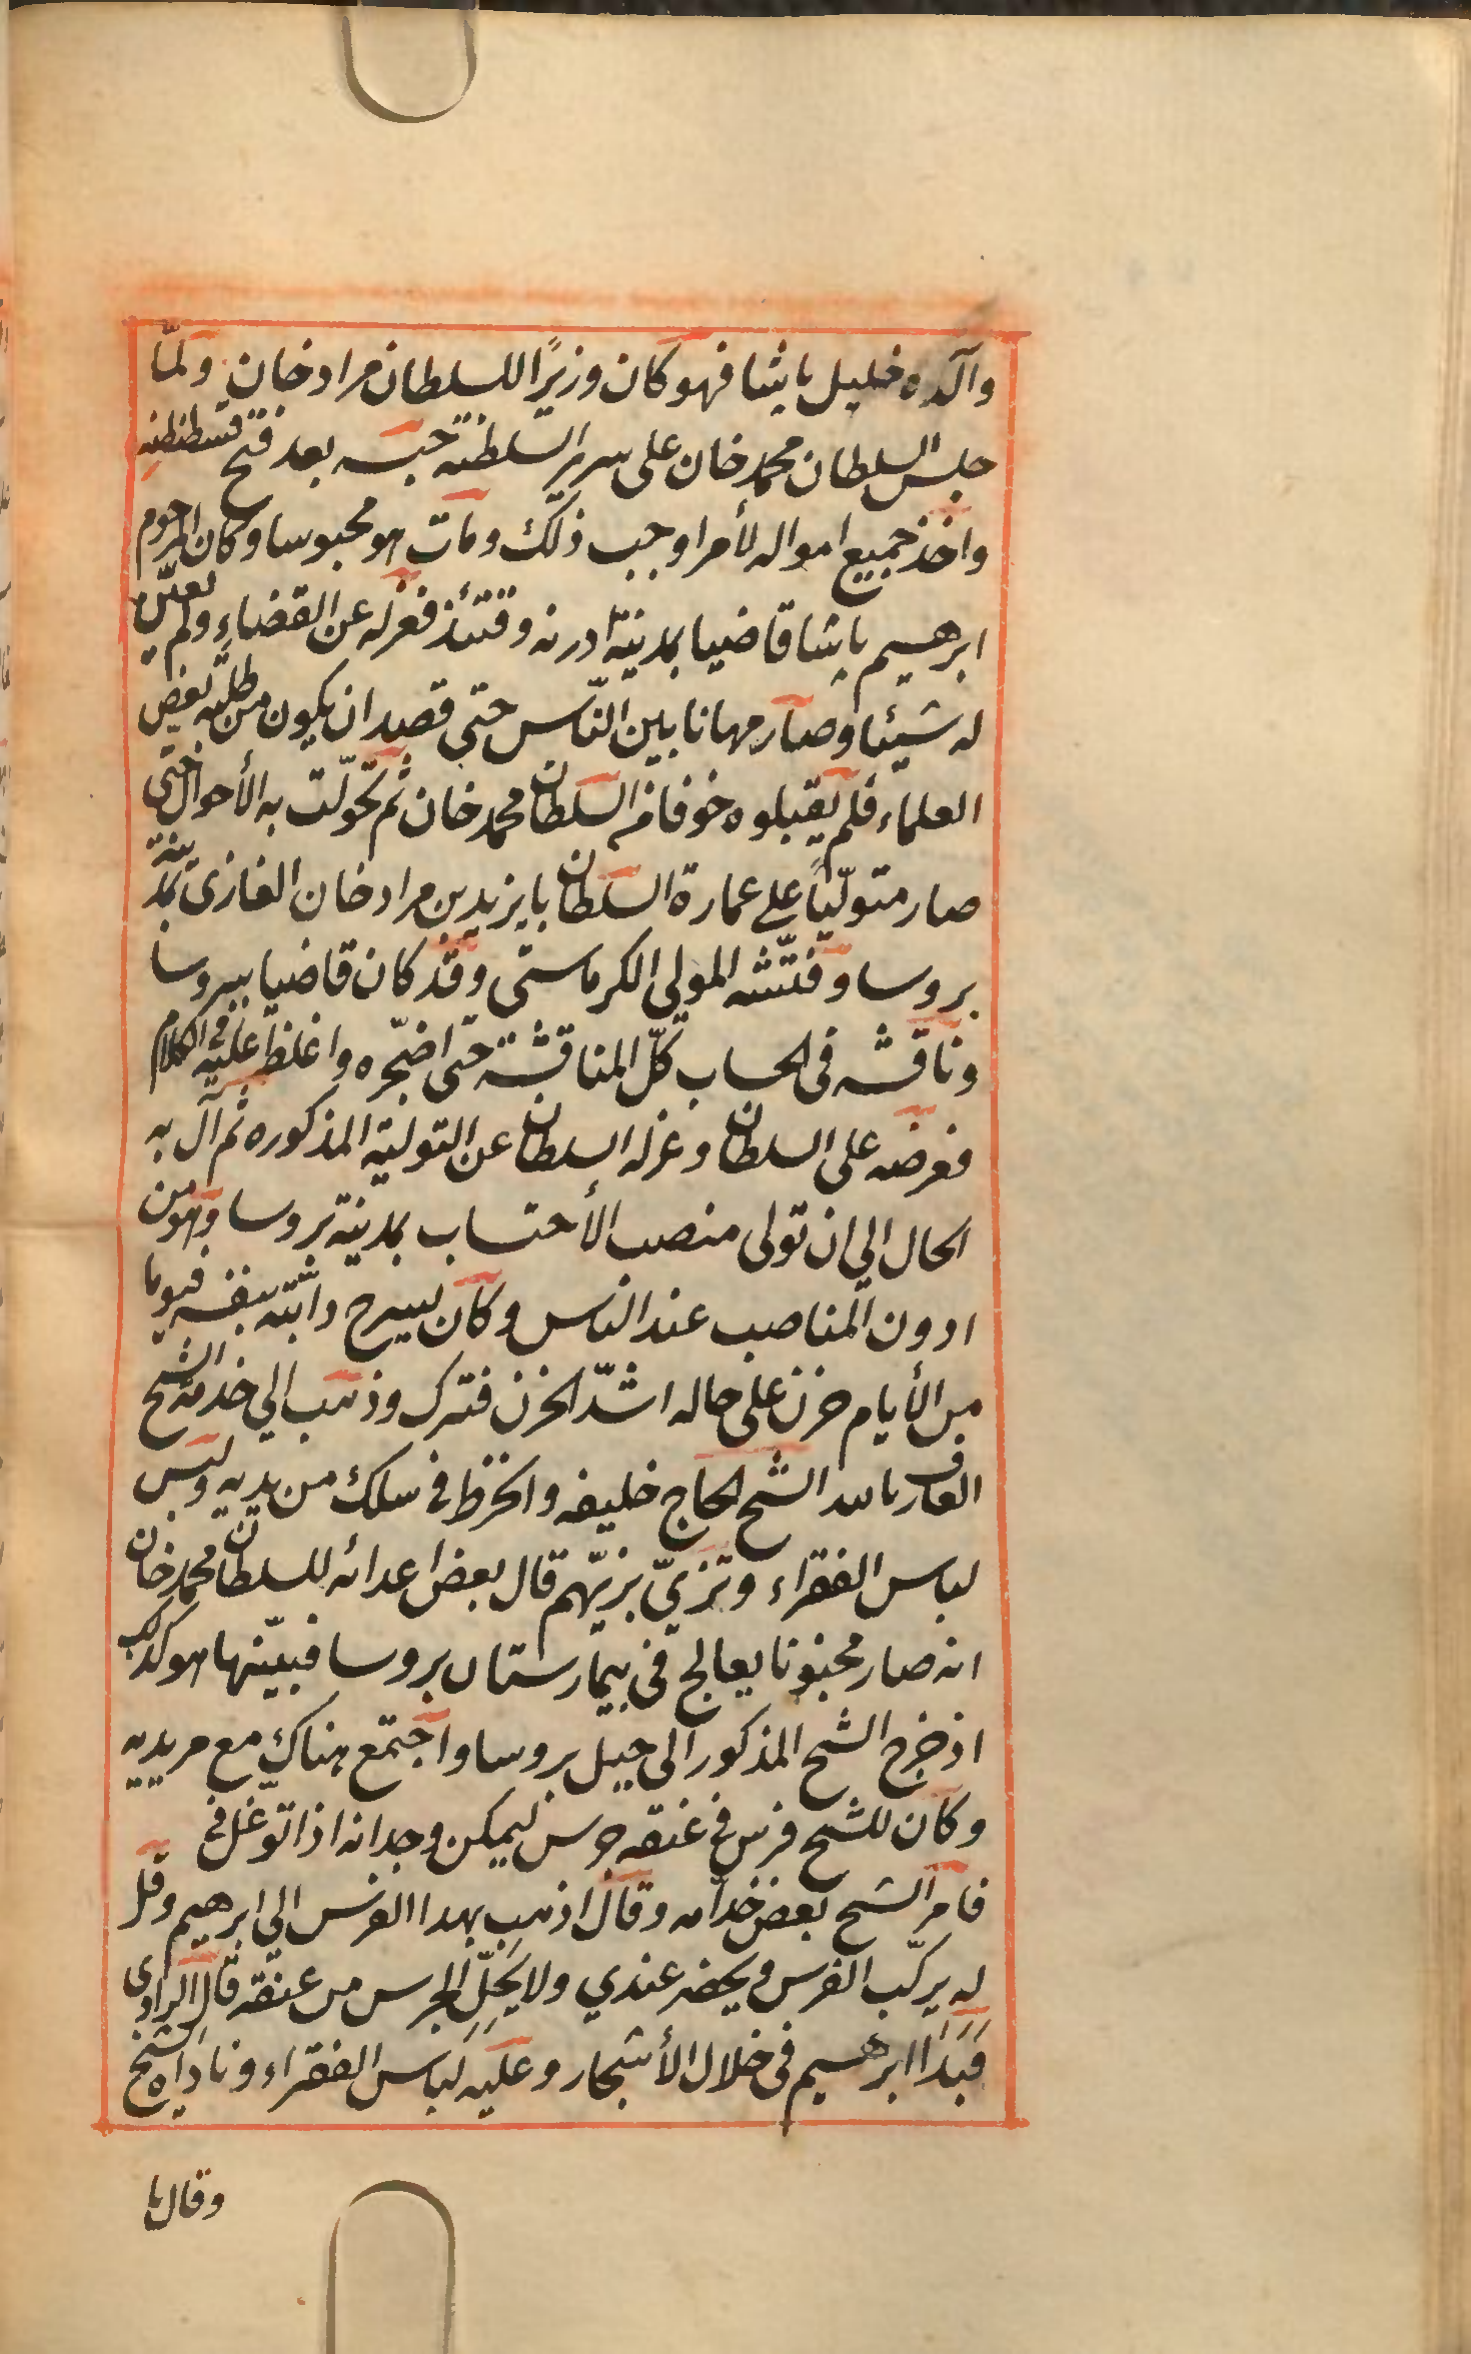 والده خليل باشا فهو كان وزيرًا للسلطان مراد خان ولمّا
جلس السلطان محمد خان على سرير السلطنة حبسه بعد فتح قسطنطنيه
واخذ جميع امواله لأمر اوجب ذلك ومات هو محبوسا وكان المرحوم
ابرهيم باشا قاضيا بمدينة ادرنه وقتئذ فعزله عن القضاء ولم يعيّن
له شيئا وصار مهانا بين النّاس حتى قصد ان يكون من طلبه بعض
العلماء فلم يقبلوه خوفا من السلطان محمد خان ثم تحوّلت به الأحوال حتى
صار متولّيًا على عمارة السلطان بايزيد بن مراد خان الغازى بمدينة
بروسا وفتّشه المولى الكرماستى وقد كان قاضيا ببروسا
وناقشه فى الحساب كلّ المناقشة حتى اضجّره واغلظ عليه فى الكلام
فعرضه على السلطان وعزله السلطان عن التولية المذكوره ثم آل به
الحال الي ان تولى منصب الأحتساب بمدينة بروسا وهو من
ادون المناصب عند الناس وكان يسرج دابّته بنفسه فيوما
من الأيام حزن على حاله اشدّ الحزن فترك وذهب الي خدمة الشيخ
العارف بالله الشيخ الحاج خليفه وانخرط فى سلك من يديه ولبس
لباس الفقراء وتزيّ بزيّهم قال بعض اعدائه للسلطان محمد خان
انه صار مجنونا يعالج فى بيمارستان بروسا فبيّنها هو كذلك
اذ خرج الشيخ المذكور الى جبل بروسا واجتمع هناك مع مريديه
وكان للشيخ فرس فى عنقه جرس ليمكن وجدانه اذا توغل فى
فامر الشيخ بعض خدامه وقال اذهب بهذا الفرس الي ابرهيم وقل
له يركّب الفرس ويحضر عندي ولا يَحُلّ الجرس من عنقه قال الراوى
فَبَدَا ابرهيم فى خلال الأشجار وعليه لباس الفقراء وناداه الشيخ
وقال يا